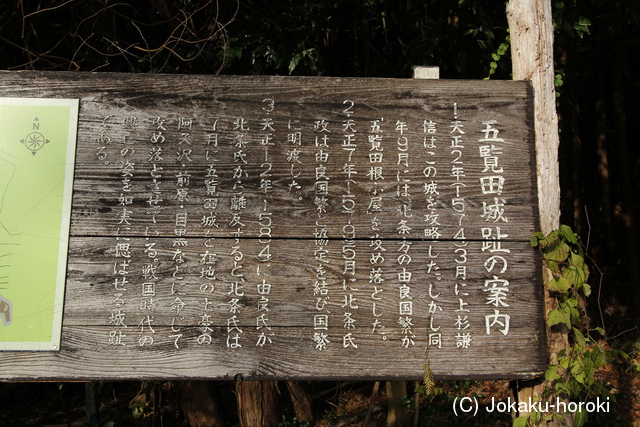 五覧田城趾の案内
1.天正2年(1574)3月に上杉謙
信はこの城を攻略した。しかし同
年9月には、北条方の由良国繁が
「五覧田根小屋」を攻め落とした。
2.天正7年(1579)5月に北条氏
政は由良国繁と協定を結び国繁
に明渡した。
3.天正12年(1584)に由良氏が
北条氏から離反すると北条氏は
7月に五覧田城を在地の土豪の
阿久沢・前原・目黒などに命じて
攻め落とさせている。戦国時代の
の姿を如実に偲ばせる城趾
である。
N
(C) Jokaku-horoki